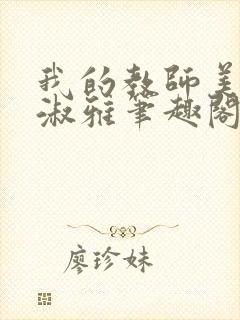 我的教師美
淑雅筆趣閣
廖珍妹